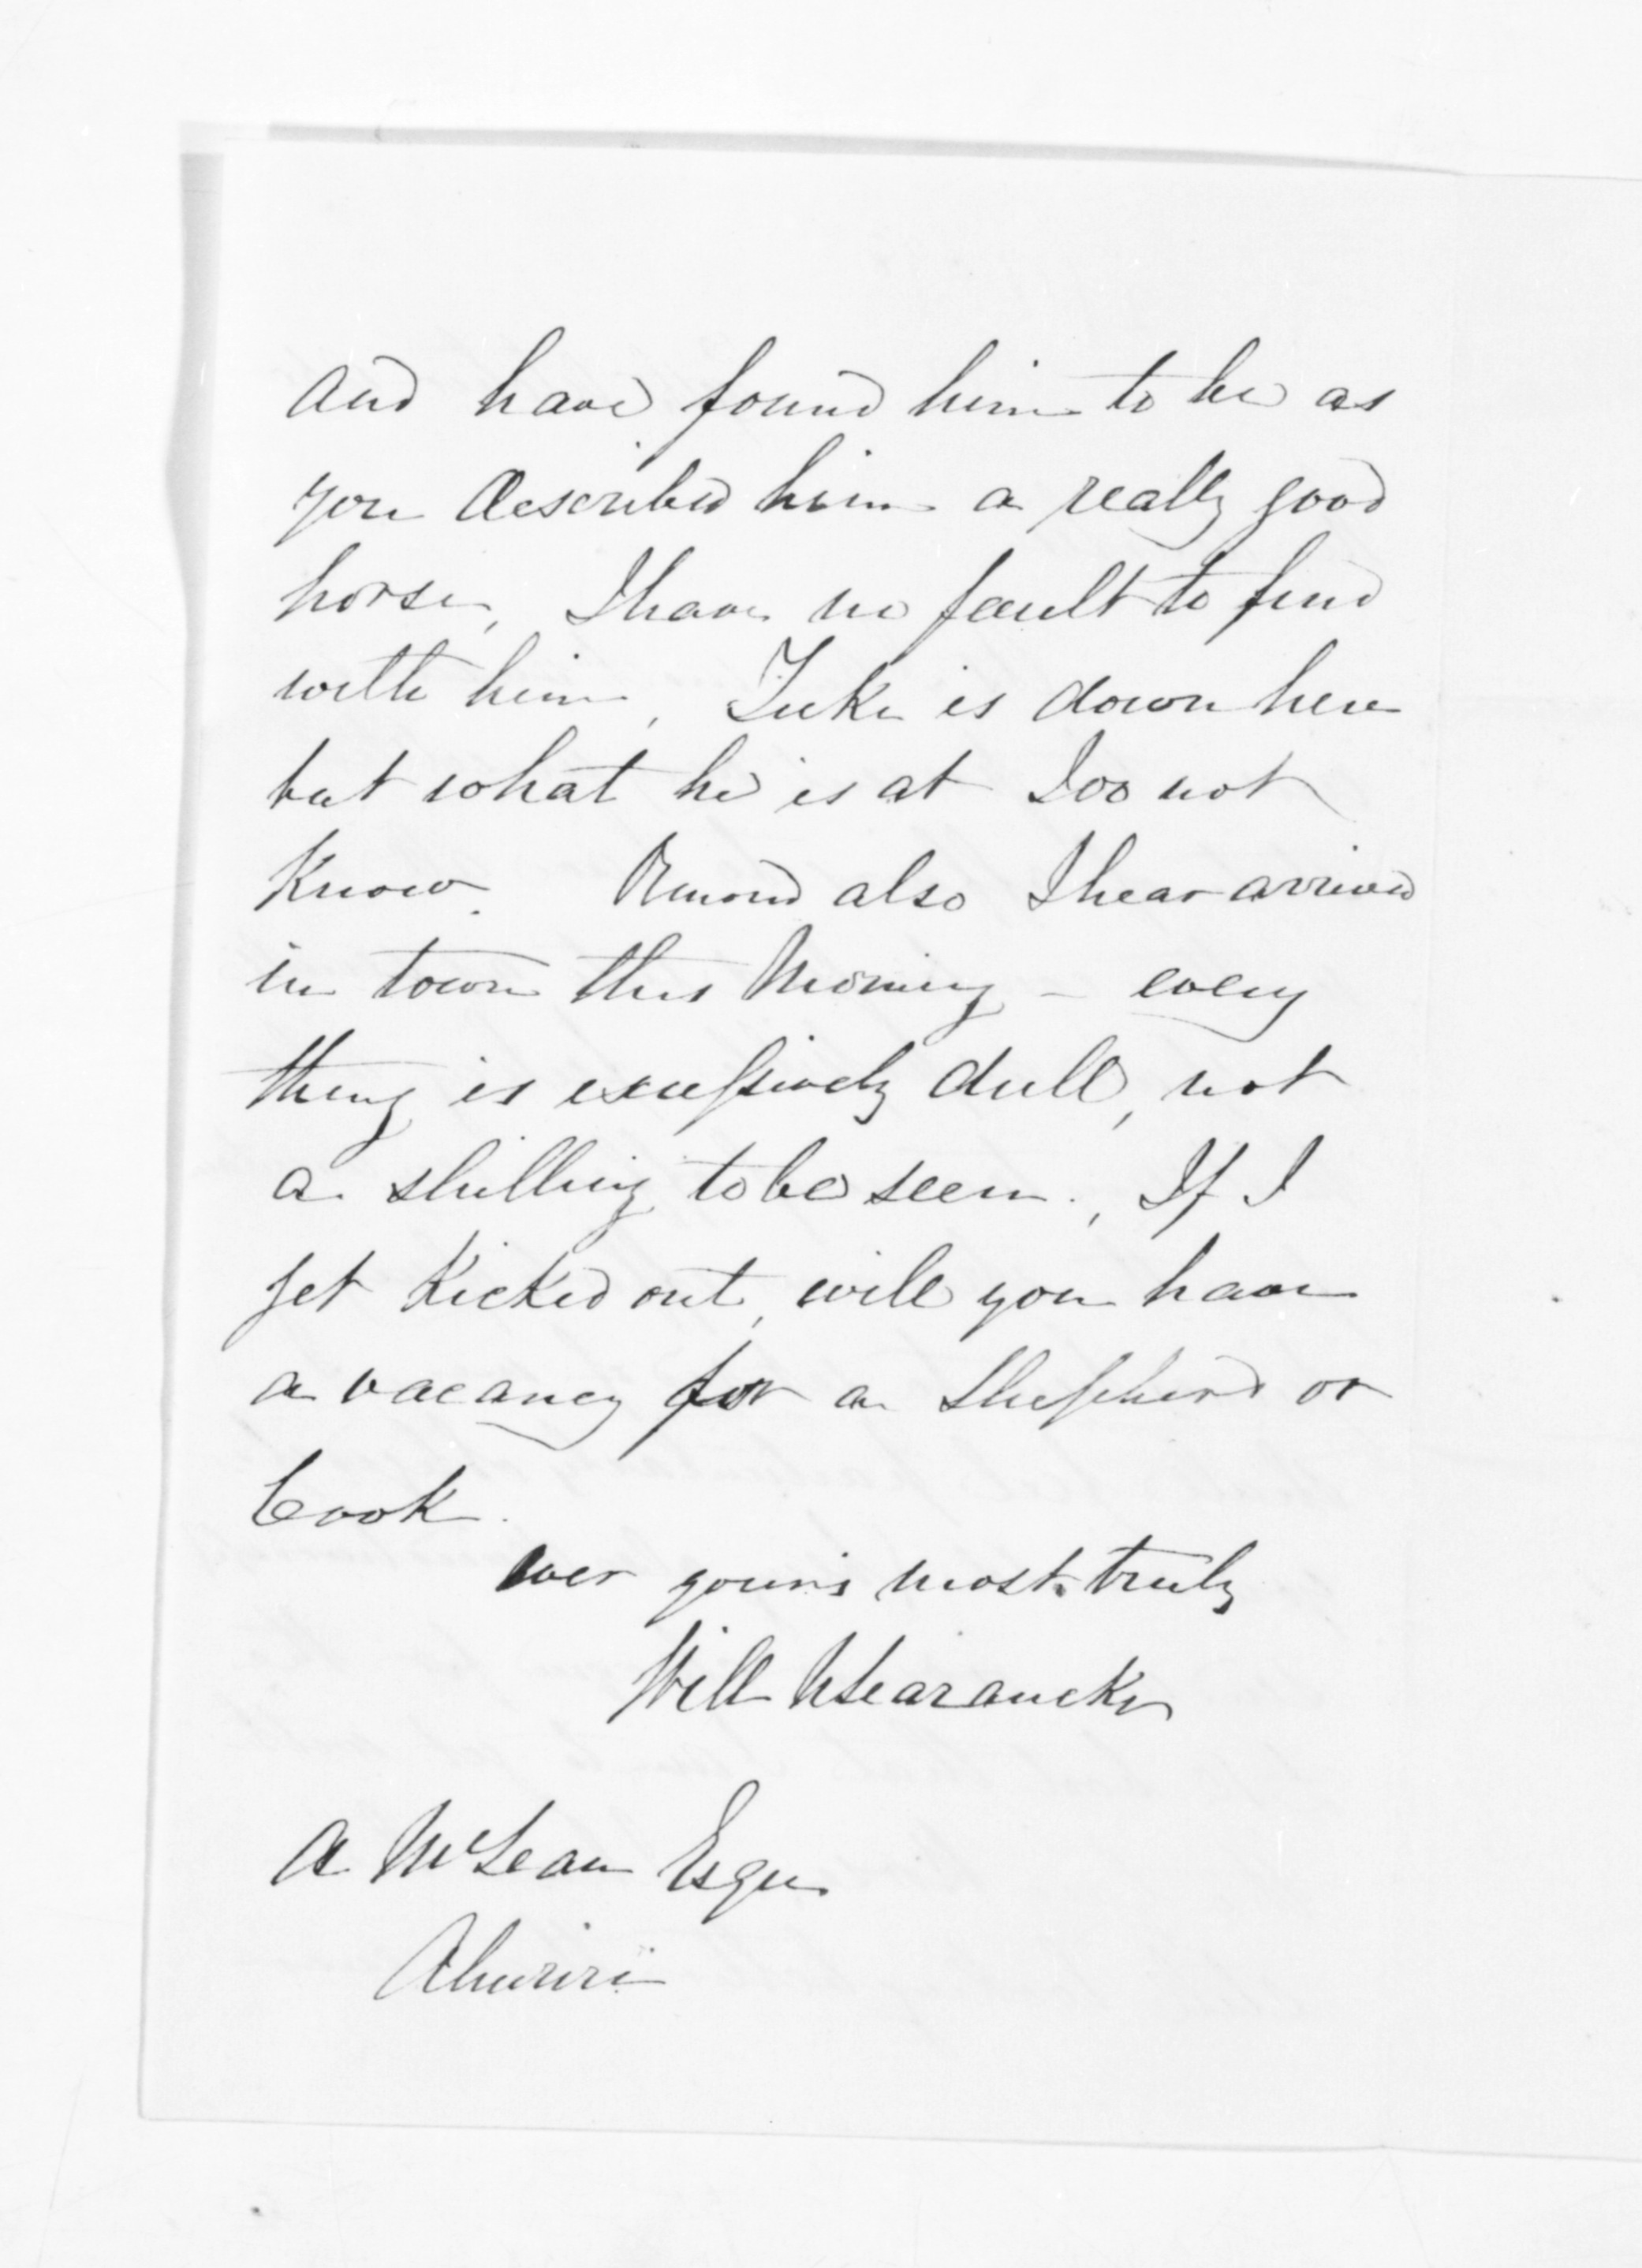 and have found him to be as
you described him a really good
horse, I have no fault to find
with him, Tuke is down here
but what he is at I do not
know. Ormond also I hear arrived
in town this morning - every
thing is excessively dull, not
a shilling to be seen., If I
get kicked out, will you have
a vacancy for a Shepherd or
Cook.
ever yours most truly
Will
A McLean Esqre
Ahuriri